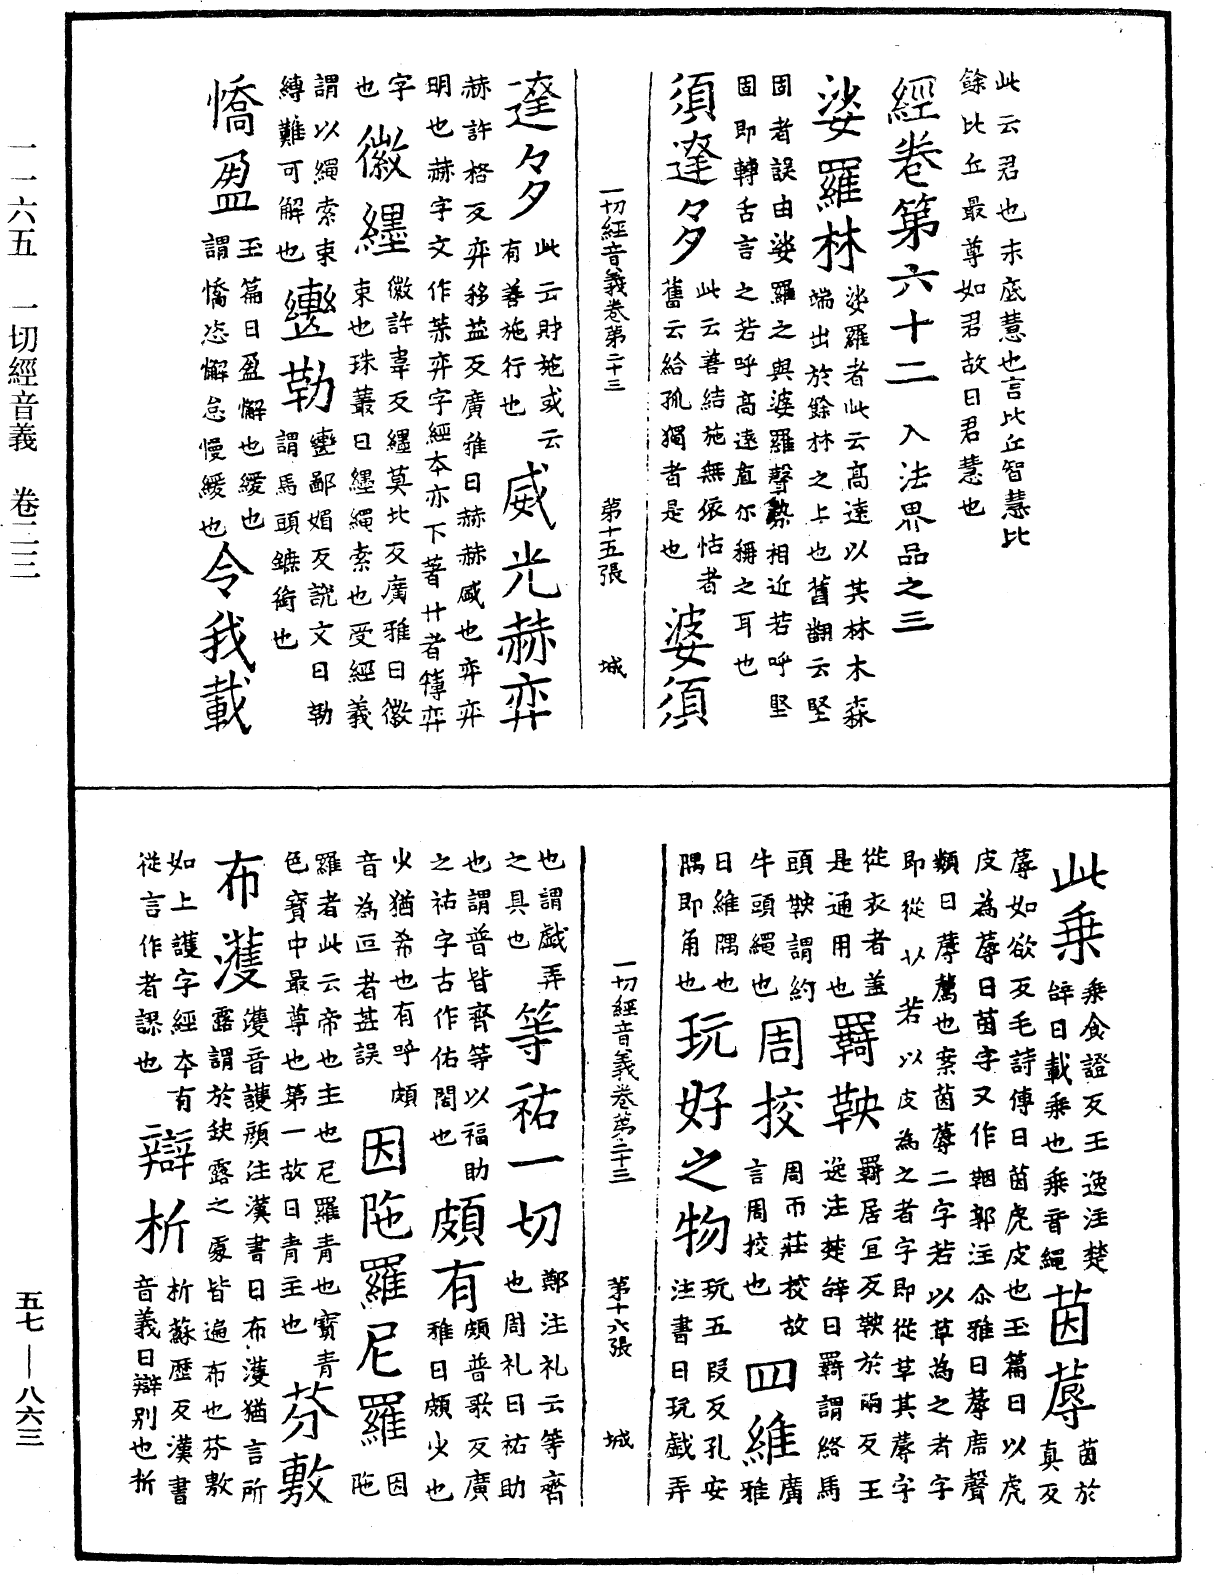 此云君也末底慧也言比丘智慧比
餘比丘最尊如君故曰君慧也
經卷第六十二 入法界品之三
娑羅林 娑羅者此云高遠以其林木森
端出於餘林之上也舊翻云堅
固者誤由娑羅之與婆羅聲勢相近若呼堅
固即轉舌言之若呼高遠直尓稱之耳也
須達多 此云善結施無依怙者
舊云給孤獨者是也
婆須
一切經音義卷第二十三 第十五張 城
達多 此云財施或云
有善施行也
威光赫弈
赫許格反弈移益反廣雅曰赫赫盛也弈弈
明也赫字文作𤍠弈字經本亦下著廾者簿弈
字也
徽纆 徽許韋反纆莫北反廣雅曰徽
束也珠叢曰纆繩索也受經義
謂以繩索束
縛難可解也
轡勒 轡鄙媚反說文曰勒
謂馬頭鑣銜也
憍盈 玉篇曰盈懈也緩也
謂憍恣懈怠慢緩也
令我載
此乗 乗食證反王逸注楚
辝曰載乗也乗音繩
茵蓐 茵於
真反
蓐如欲反毛詩傳曰茵虎皮也玉篇曰以虎
皮為蓐曰茵字又作鞇郭注尒雅曰蓐席聲
類曰蓐薦也案茵蓐二字若以草為之者字
即從廾若以皮為之者字即從革其蓐字
從衣者盖
是通用也
羇鞅 羇居宜反鞅於兩反王
逸注楚辝曰羇謂絡馬
頭鞅謂約
牛頭繩也
周挍 周帀莊校故
言周挍也
四維 廣
雅
曰維隅也
隅即角也
玩好之物 玩五段反孔安
注書曰玩戲弄
一切經音義卷第二十三 第十六張 城
也謂戲弄
之具也
等祐一切 鄭注礼云等齊
也周礼曰祐助
也謂普皆齊等以福助
之祐字古作佑閣也
頗有 頗普歌反廣
雅曰頗少也
火猶希也有呼頗
音為叵者甚誤
因陁羅尼羅 因
陁
羅者此云帝也主也尼羅青也寶青
色寶中最尊也第一故曰青主也
芬敷
布濩 濩音護顏注漢書曰布濩猶言所
露謂於缺露之處皆遍布也芬敷
如上護字經本有
從言作者誤也
辯析 析蘇歷反漢書
音義曰辯别也析
一一六五 一切經音義 卷二三
五七—八六三